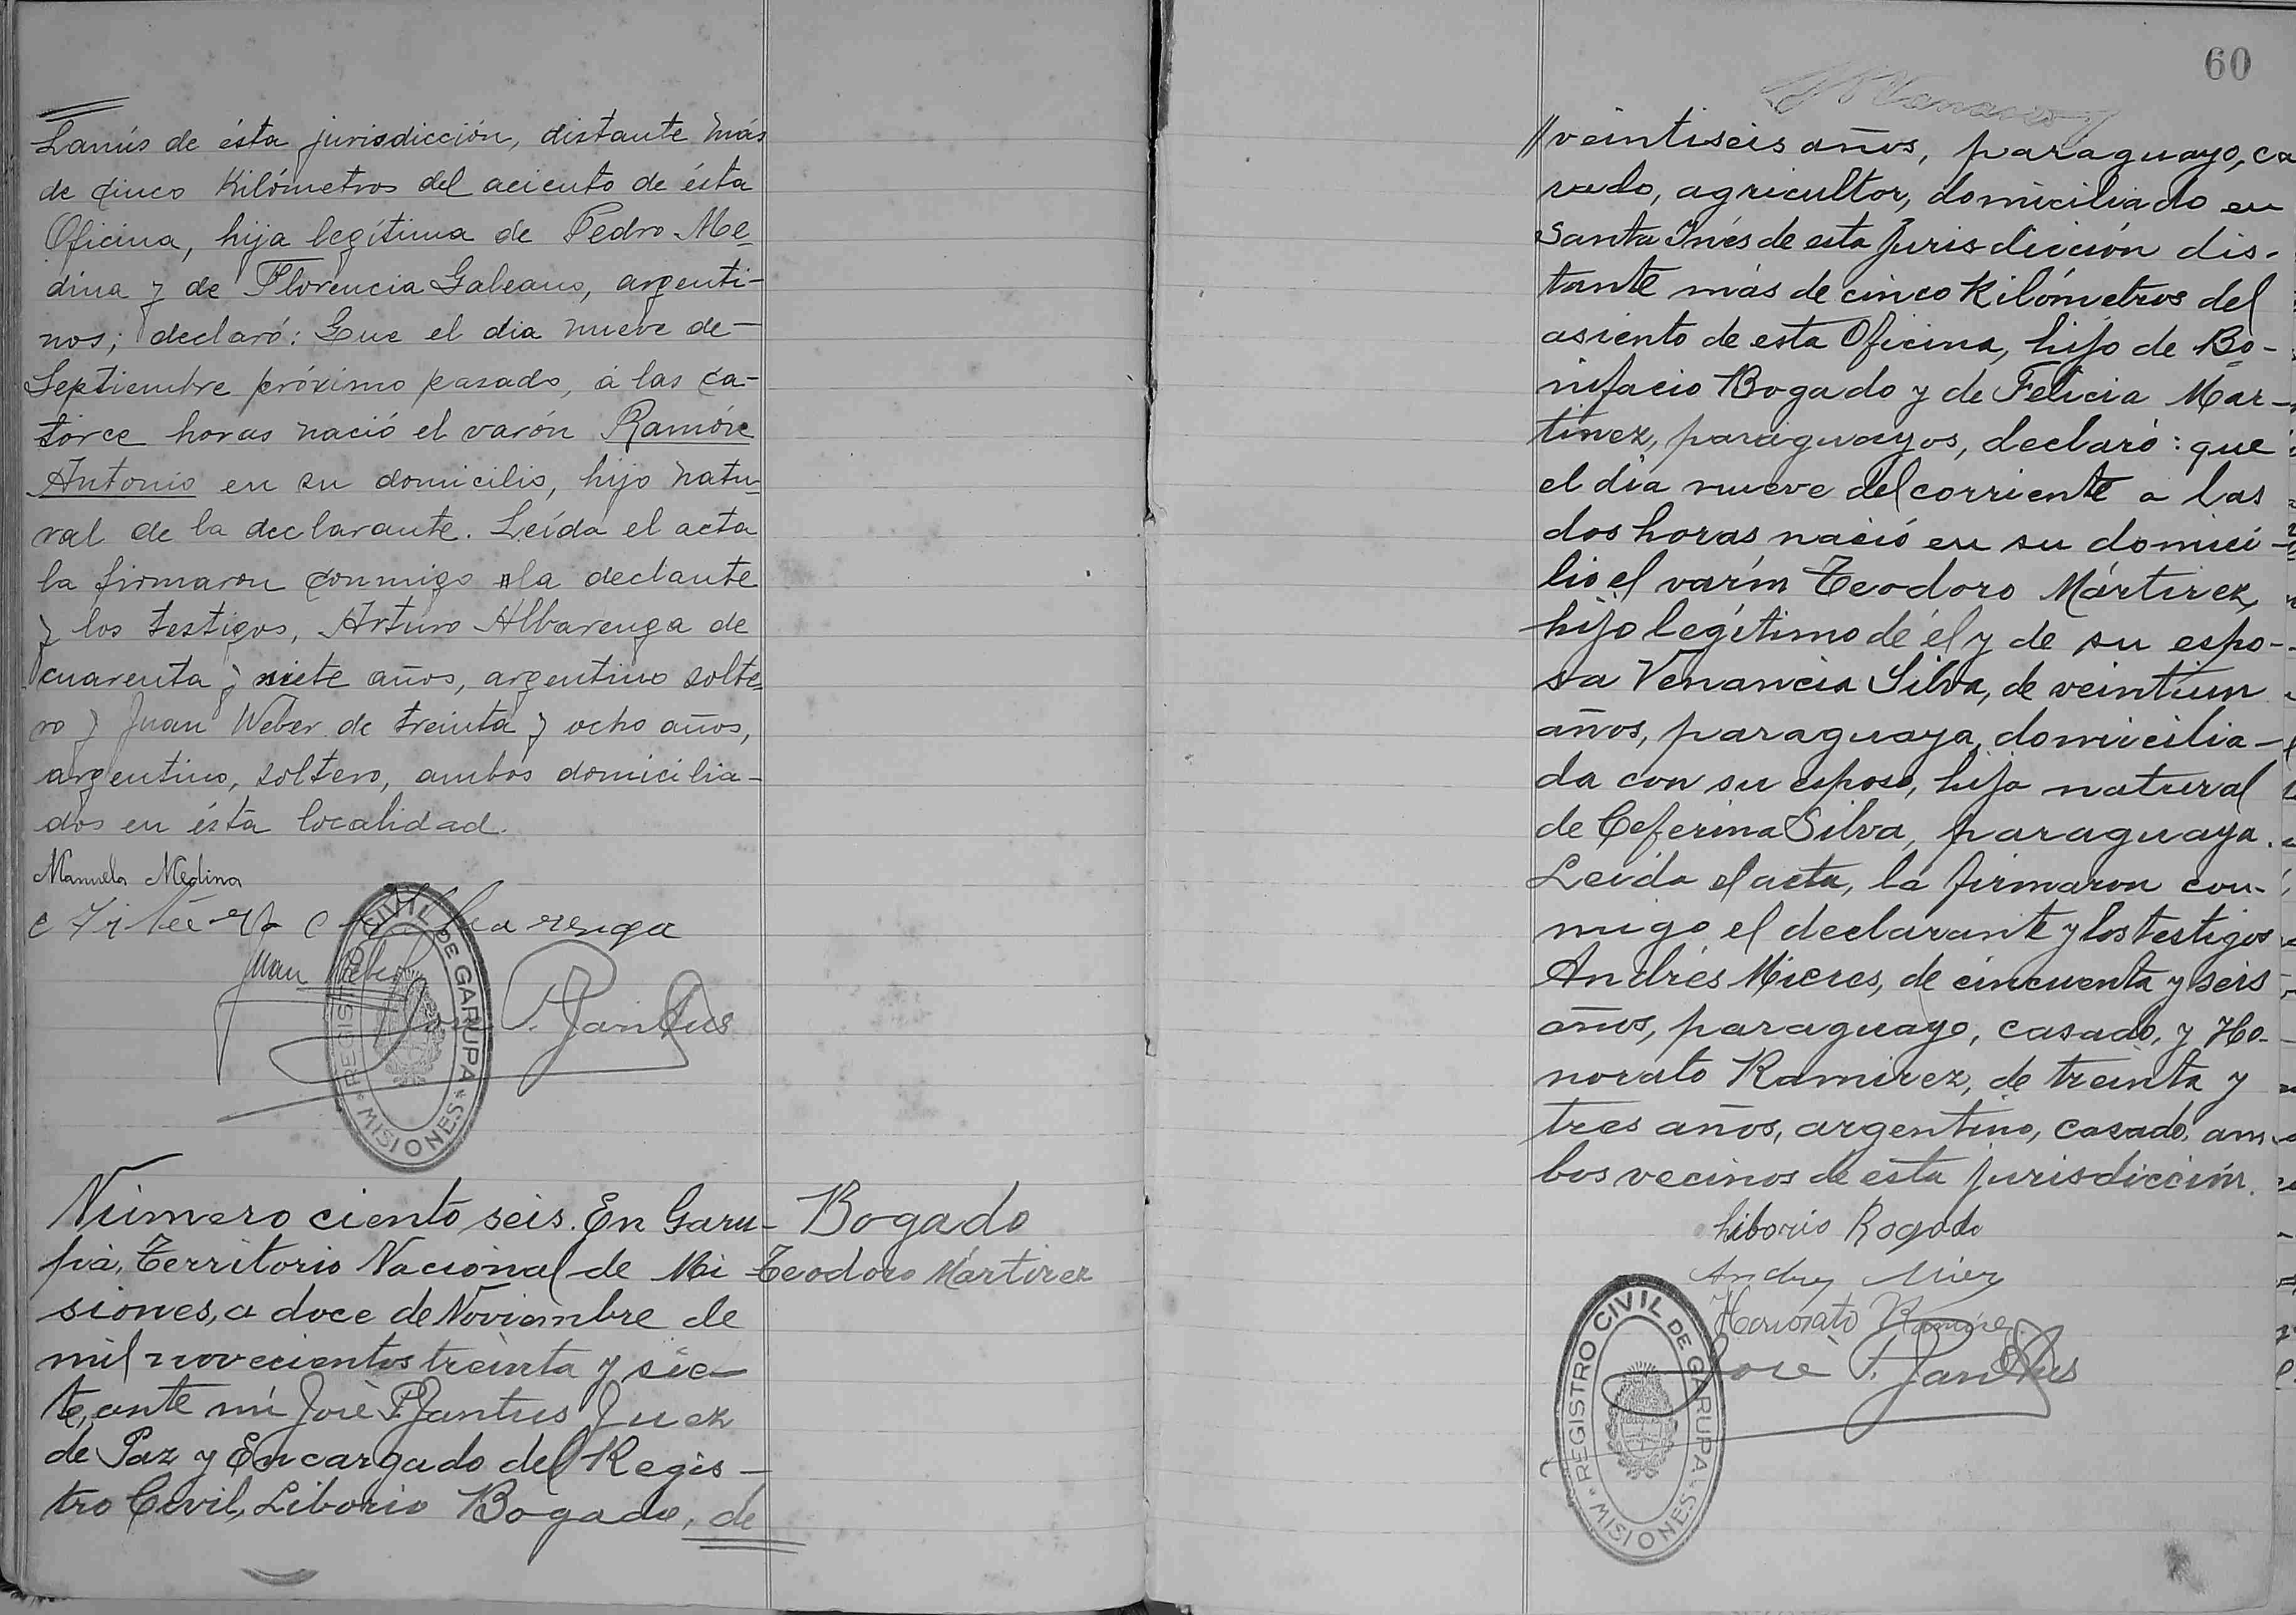 Lanús de ésta jurisdicción, distante más
de cinco Kilómetros del aciento de ésta
Oficina, hija legítima de Pedro Me-
dina y de Florencia Galeano, argenti-
nos; declaró: Que el dia nueve de-
Septiembre próximo pasado, á las ca-
torce horas nació el varón Ramón
Antonio en su domicilio, hijo natu-
ral de la declarante. Leída el acta
la firmaron conmigo la declante
y los testigos, Arturo Albarenga de
cuarenta y siete años, argentino solte-
ro y Juan Weber de treinta y ocho años,
argentino, soltero, ambos domicilia-
dos en ésta localidad.
Manuela Medina
Juan Weber
José P. Jantus
REGISTRO CIVIL DE GARUPA
* MISIONES *
Número ciento seis. En Garu-
pá, Territorio Nacional de Mi
siones, a doce de Noviembre de
mil novecientos treinta y sie-
te, ante mí José P. Jantus Juez
de Paz y Encargado del Regis-
tro Civil, Liborio Bogado, de
Bogado
Teodoro Mártirez
60
// veintiseis años, paraguayo, ca
sado, agricultor, domiciliado en
Santa Inés de esta Jurisdicción dis-
tante más de cinco Kilómetros del
asiento de esta Oficina, hijo de Bo-
nifacio Bogado y de Felicia Mar-
tinez, paraguayos, declaró: que
el día nueve del corriente a las
dos horas nació en su domici-
lio el varón Teodoro Mártirez,
hijo legítimo de él y de su espo-
sa Venancia Silva, de veintiun
años, paraguaya, domicilia-
da con su esposo, hija natural
de Ceferina Silva, paraguaya.
Leída el acta, la firmaron con-
migo el declarante y los testigos
Andrés Mieres, de cincuenta y seis
años, paraguayo, casado, y Ho-
norato Ramirez, de treinta y
tres años, argentino, casado, am-
bos vecinos de esta jurisdicción.
Liborio Bogado
Honorato Ramirez
José P. Jantus
REGISTRO CIVIL DE GARUPA
* MISIONES *